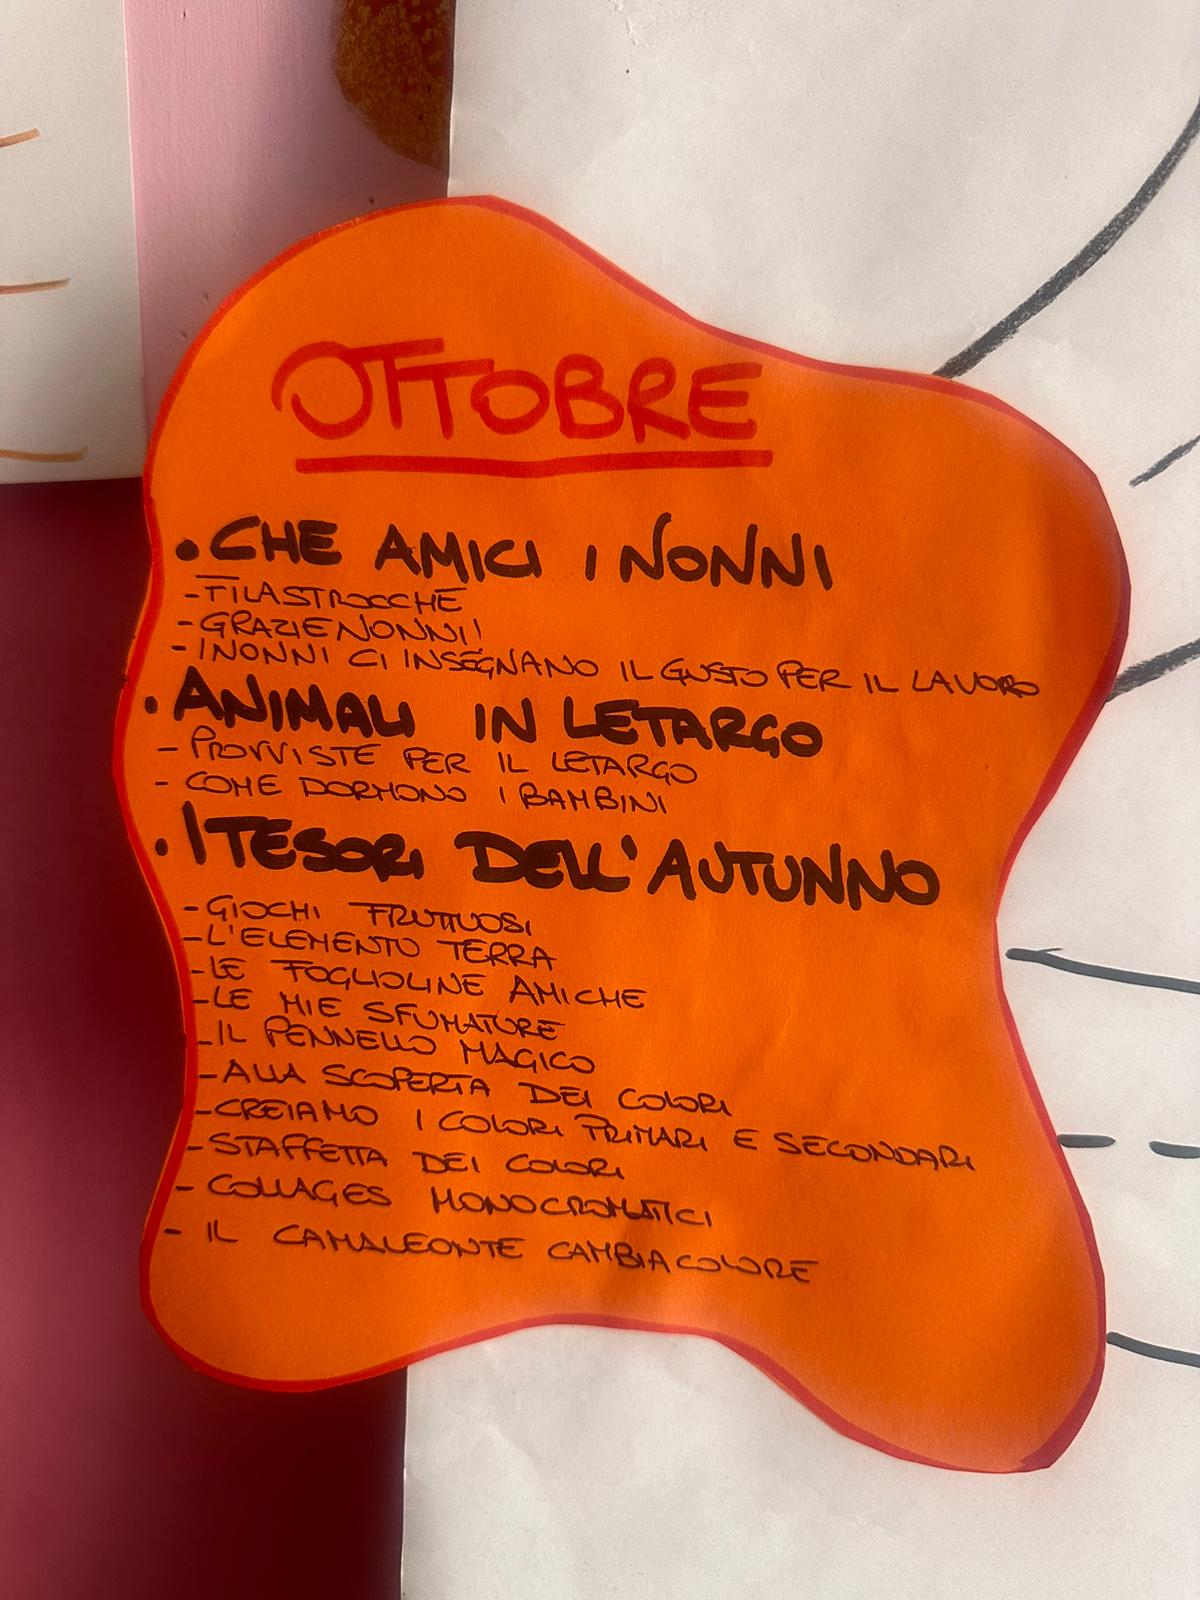 OTTOBRE
• CHE AMICI I NONNI
- FILASTROCCHE
- GRAZIE NONNI!
- I NONNI CI INSEGNANO IL GUSTO PER IL LAVORO
• ANIMALI IN LETARGO
- PROVVISTE PER IL LETARGO
- COME DORMONO I BAMBINI
• I TESORI DELL'AUTUNNO
- GIOCHI FRUTTUOSI
- L'ELEMENTO TERRA
- LE FOGLIOLINE AMICHE
- LE MIE SFUMATURE
- IL PENNELLO MAGICO
- ALLA SCOPERTA DEI COLORI
- CREIAMO I COLORI PRIMARI E SECONDARI
- STAFFETTA DEI COLORI
- COLLAGES MONOCROMATICI
- IL CAMALEONTE CAMBIA COLORE